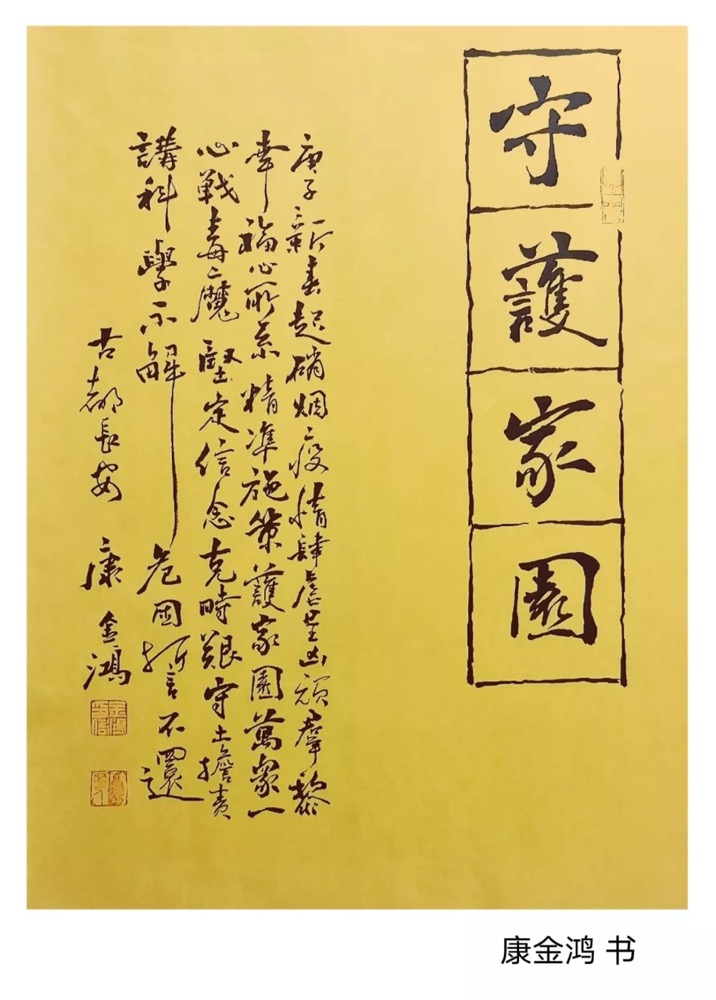 守護家園
庚子新春起硝烟疫情肆虐呈凶頑羣黎
幸福心所系精准施策護家園萬衆一
心戰毒魔堅定信念克時艱守土擔責
講科學不解危困誓不還
古都長安 康金鴻
康金鸿 书